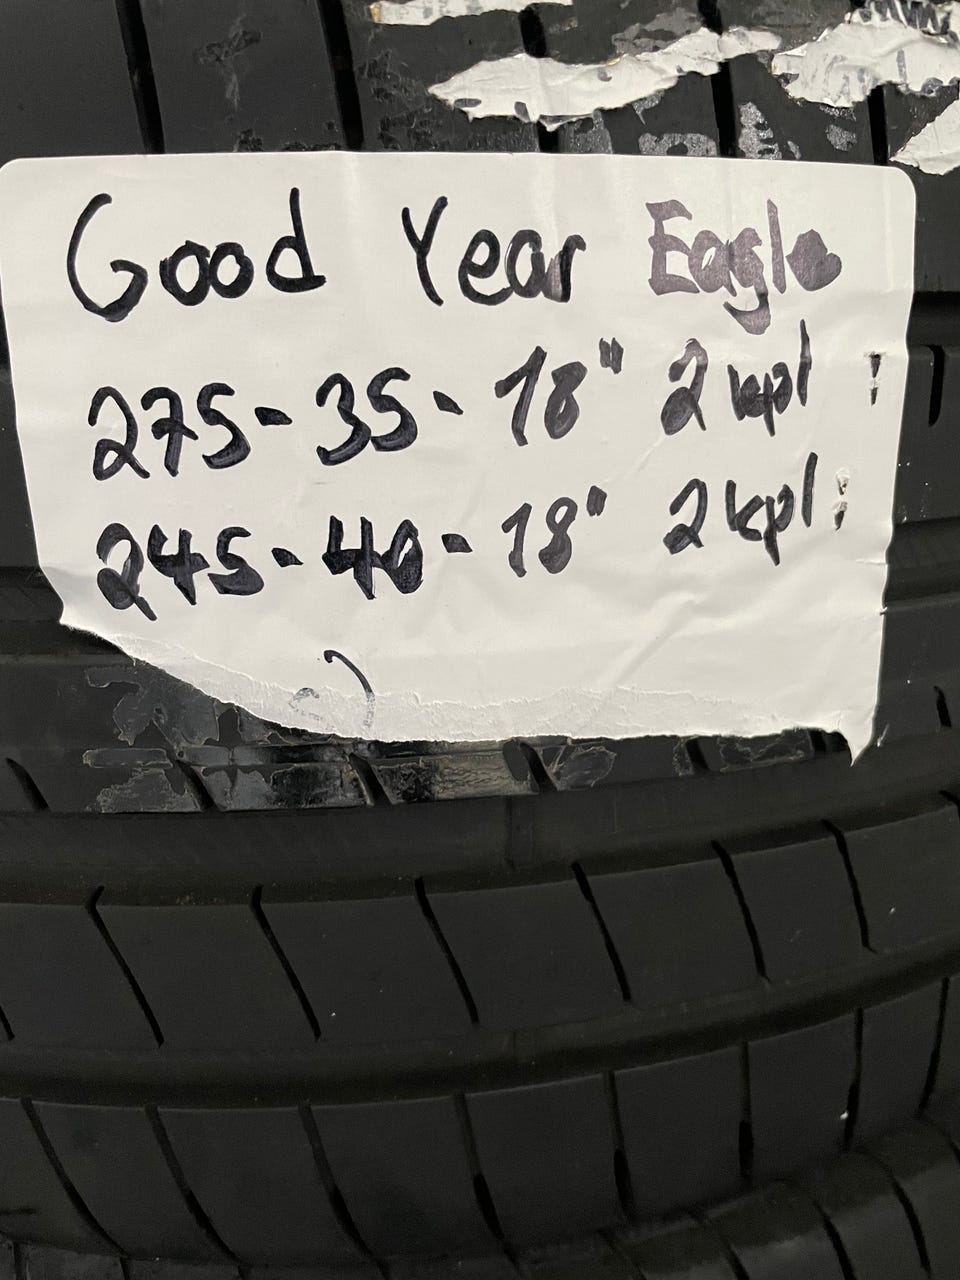 Good Year Eagle
275-35-18" 2 kpl
245-40-18" 2 kpl